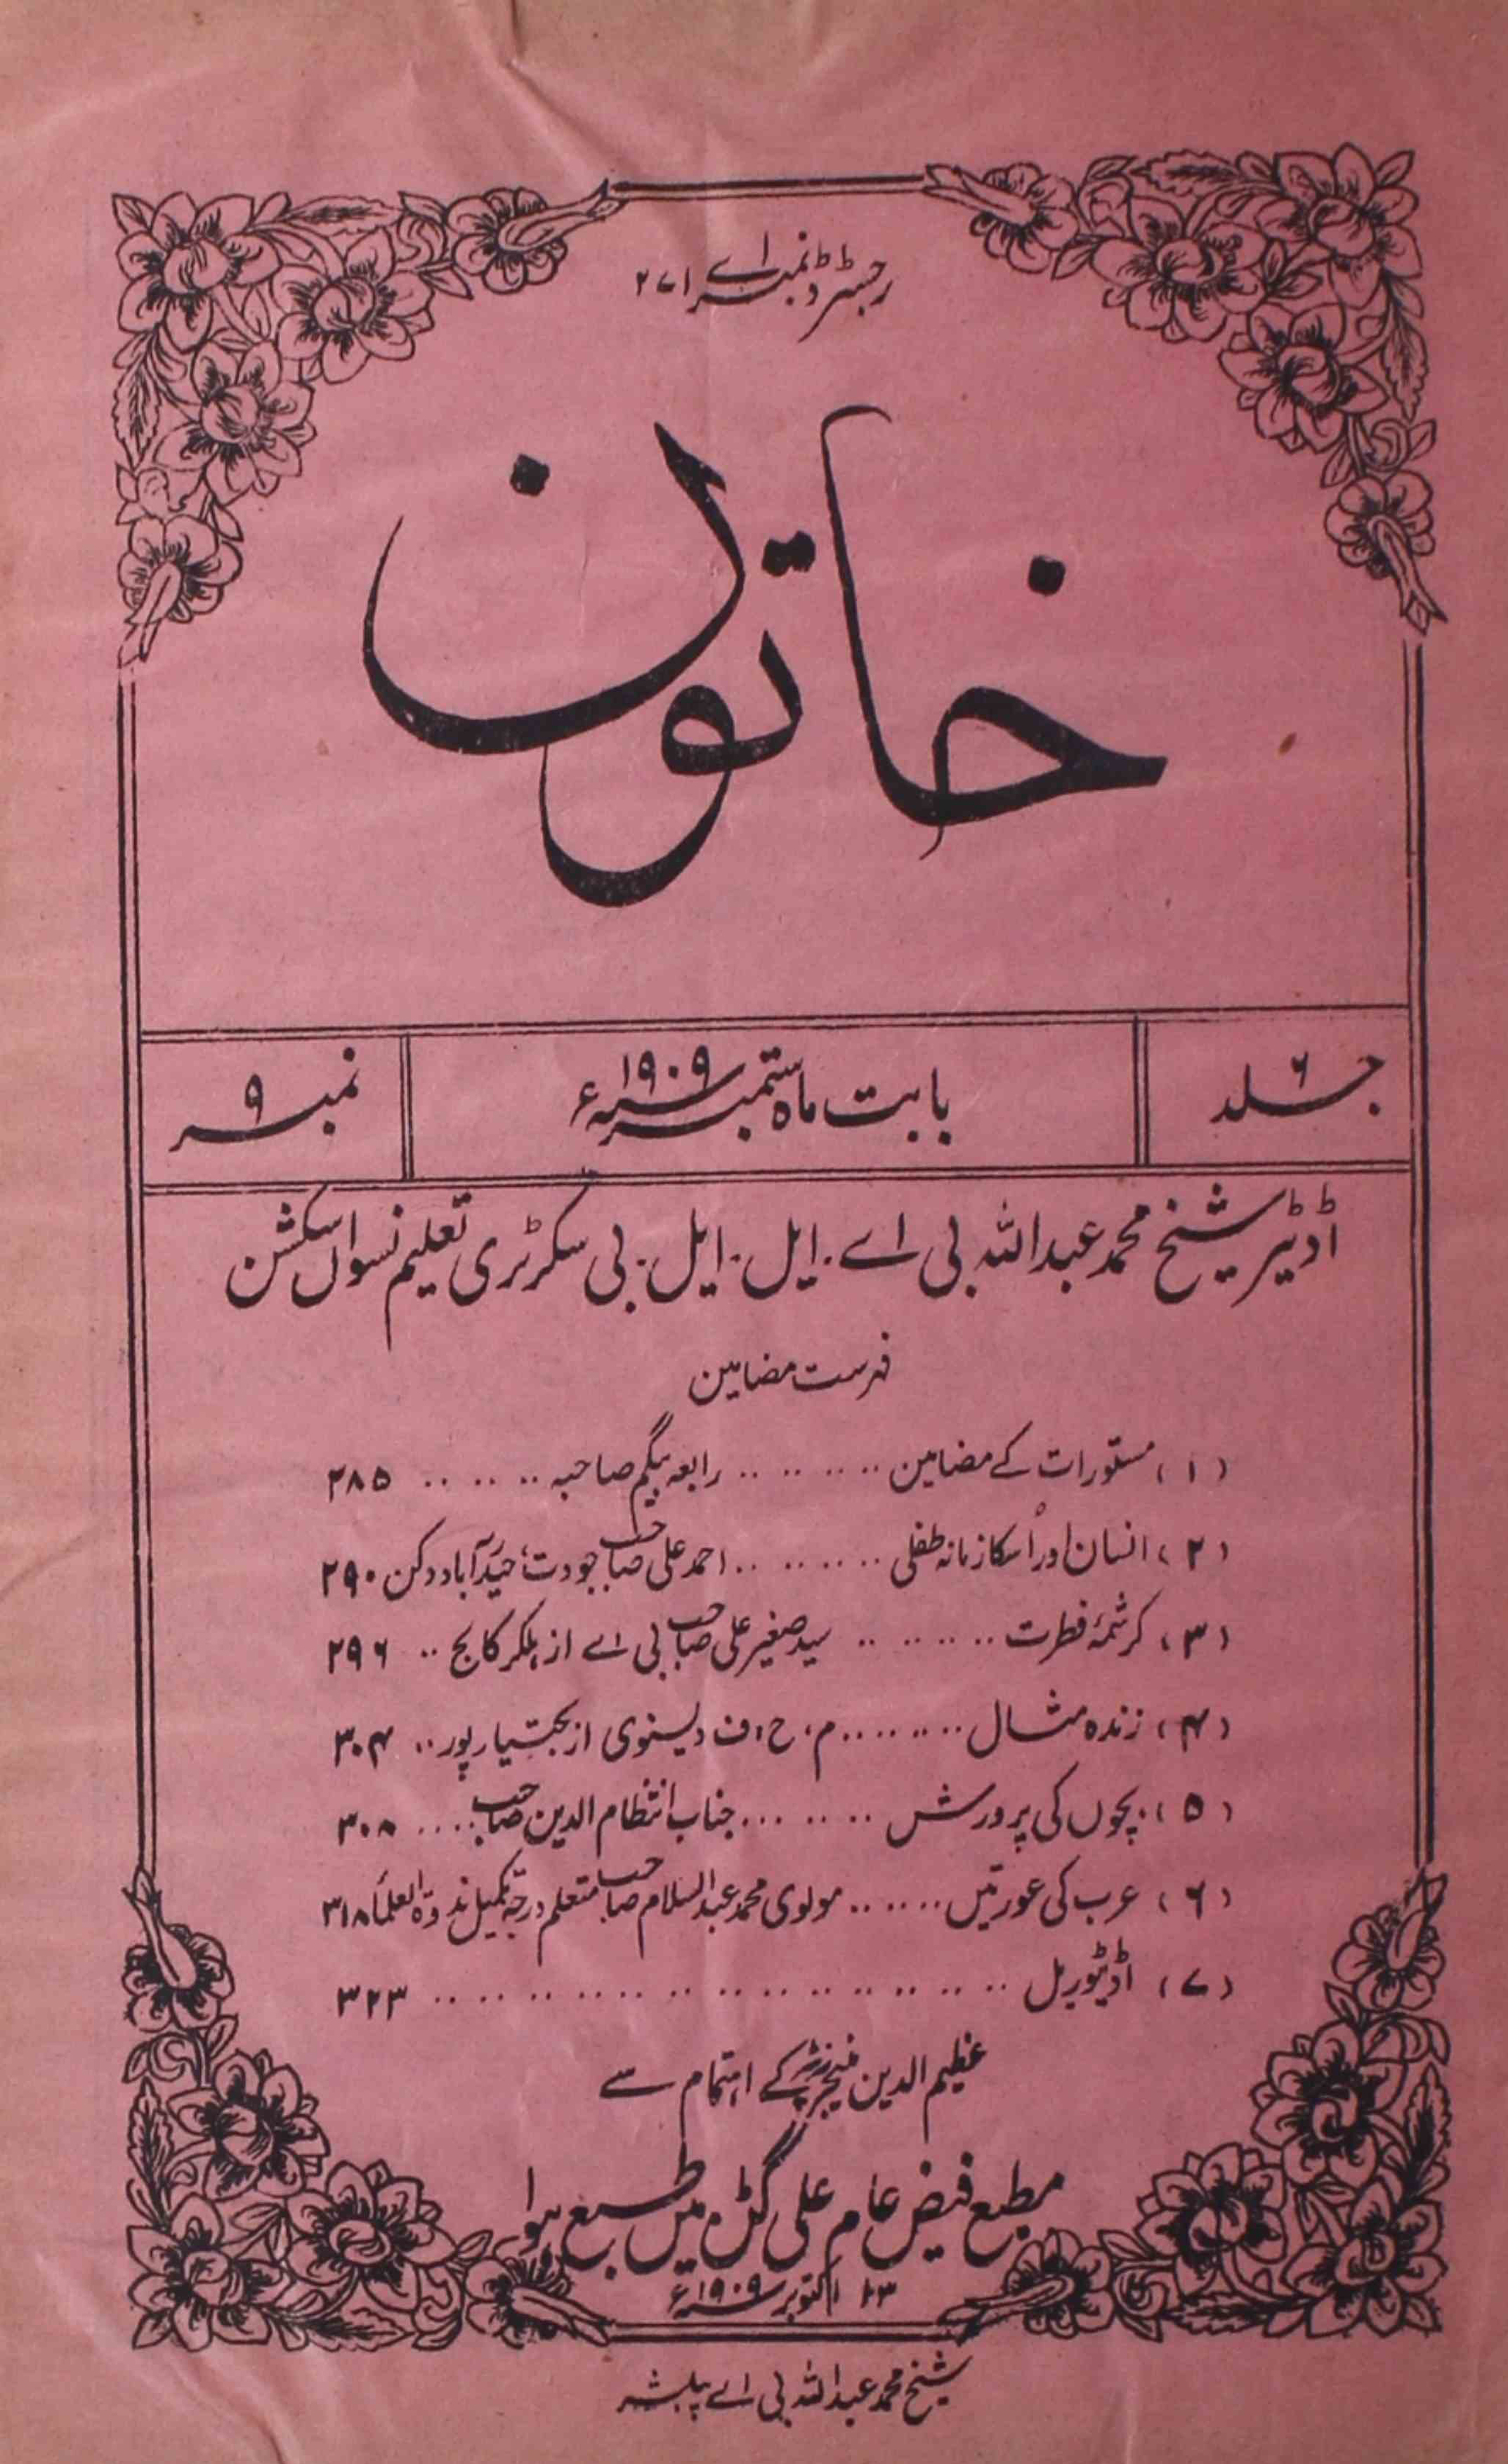 رجسٹرڈ نمبر اے ۲۷۱
خاتون
جلد ۶
بابت ماہ ستمبر سنہ ۱۹۰۹ء
نمبر ۹
اڈیٹر شیخ محمد عبداللہ بی اے۔ ایل۔ ایل۔ بی سکرٹری تعلیم نسواں سکشن
فہرست مضامین
(۱) مستورات کے مضامین .. .. .. .. رابعہ بیگم صاحبہ .. .. .. .. ۲۸۵
(۲) انسان اور اُسکا زمانہ طفلی .. .. .. .. احمد علی صاحب جودت، حیدرآباد دکن ۲۹۰
(۳) کرشمۂ فطرت .. .. .. .. سید صغیر علی صاحب بی اے از ہلکر کالج .. ۲۹۶
(۴) زندہ مثال .. .. .. .. م، ح، ف دیسنوی از بختیارپور .. ۳۰۴
(۵) بچوں کی پرورش .. .. .. .. جناب انتظام الدین صاحب .. .. ۳۰۸
(۶) عرب کی عورتیں .. .. .. مولوی محمد عبدالسلام صاحب متعلم درجۂ تکمیل ندوۃ العلماء ۳۱۸
(۷) اڈیٹوریل .. .. .. .. .. .. .. .. .. .. .. .. ۳۲۳
عظیم الدین منیجر کے اہتمام سے
مطبع فیض عام علی گڑہ میں طبع ہوا
۲۳ اکتوبر سنہ ۱۹۰۹ء
شیخ محمد عبداللہ بی اے پبلشر